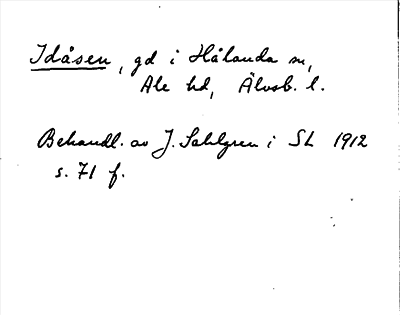 Idåsen, gd i Hålanda sn,
Ale hd, Älvsb. l.
Behandl. av J. Sahlgren i SL 1912
s. 71 f.